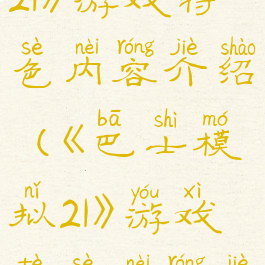 21》游戏特
sè nèi róng jiè shào
色内容介绍
bā shì mó
(《巴士模
nǐ yóu xì
拟21》游戏
tè sè nèi róng jiè